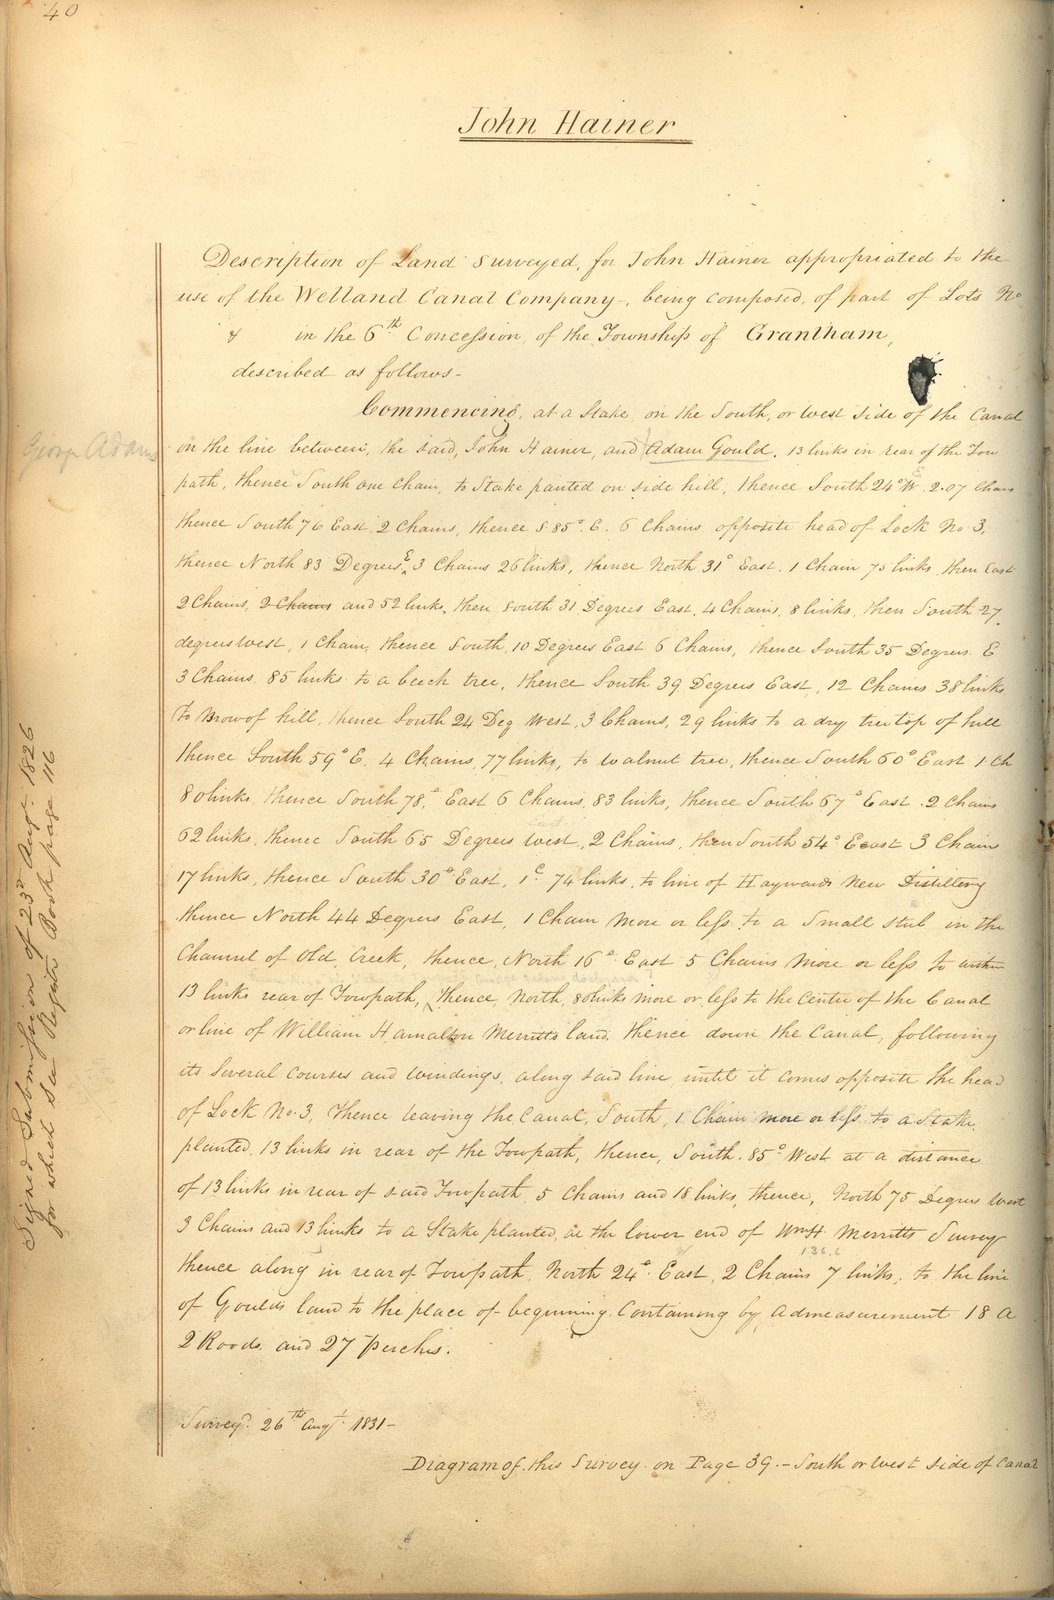 40
John Hainer
Description of Land Surveyed, for John Hainer appropriated to the
use of the Welland Canal Company, being composed, of part of Lots No
& in the 6th Concession, of the Township of Grantham,
described as follows-
Commencing, at a Stake, on the South, or west side of the Canal
George Adams
on the line between, the said, John Hainer, and Adam Gould, 13 links in rear of the Tow
path, thence South one Chain, to Stake panted on side hill, thence South 24° W, 2.07 Chains
thence South 76 East, 2 Chains, thence S 85° E. 6 Chains opposite head of Lock No 3,
thence North 83 Degrees E 3 Chains 26 links, thence North 31° East. 1 Chain 75 links, then East
2 Chains, 2 Chains and 52 links, then South 31 Degrees East, 4 Chains, 8 links, then South 27
degrees west, 1 Chain, thence South, 10 Degrees East 6 Chains, thence South 35 Degrees E
3 Chains, 85 links to a beech tree, thence South 39 Degrees East, 12 Chains 38 links
To Brow of hill, thence South 24 Deg West, 3 Chains, 29 links to a dry tree top of hill
thence South 59° E. 4 Chains, 77 links, to walnut tree, thence South 60° East 1 Ch
80 links, thence South 78° East 6 Chains, 83 links, thence South 67° East 2 Chains
62 links, thence South 65 Degrees west, 2 Chains, then South 54° East 3 Chains
17 links, thence South 30° East, 1C 74 links, to line of Haywards New Distillery
thence North 44 Degrees East, 1 Chain more or less to a Small stub in the
Channel of Old, Creek, thence, North 16° East 5 Chains more or less to within
13 links rear of Towpath, thence, North, 80 links more or less to the Centre of the Canal
or line of William Hamalton Merritts land, thence down the Canal, following
its Several courses and windings, along said line, until it comes opposite the head
of Lock No. 3, thence leaving the Canal, South, 1 Chain more or less to a Stake
planted, 13 links in rear of the Towpath, thence, South. 85° West at a distance
of 13 links in rear of said Towpath, 5 Chains and 18 links, thence, North 75 Degrees West
3 Chains and 13 links to a Stake planted, at the lower end of Wm H Merritts Survey
136.6
thence along in rear of Towpath, North 24° East, 2 Chains 7 links, to the line
of Goulds land to the place of beginning. Containing by admeasurement 18 A
2 Roods. and 27 perches.
Survey'd 26th Augt 1831-
Diagram of this Survey on Page 39.- South or West side of Canal
Signed Submission of 23rd Augt. 1826
for which see Register Book page 116